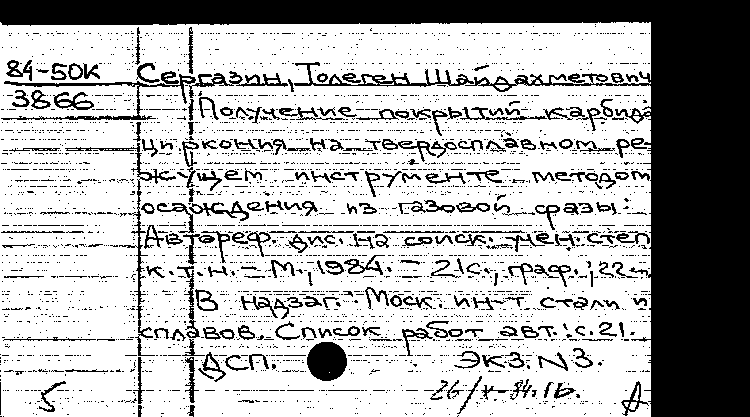 84-50К Сергазин, Толеген Шайдахметович
3866
Получение покрытий карбида
циркония на твердосплавном ре-
жущем инструменте методом
осаждения из газовой фазы:
Автореф. дис. на соиск. учен. степ
к.т.н. – М., 1984. – 21с., граф.; 22
В надзаг.: Моск. ин-т стали и
сплавов. Список работ авт.: с.21.
ДСП. ЭКЗ. N3.
5 26/X-84.